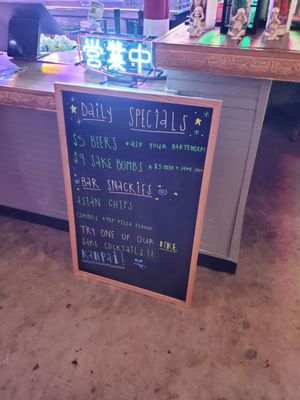 営業中
DAILY SPECIALS
$5 BEERS *ASK YOUR BARTENDER!
$9 SAKE BOMBS *$5 BEER + SAKE
BAR SNACKIES
ASIAN CHIPS
COMBOS *PEP PIZZA FLAVOR
TRY ONE OF OUR FIRE
SAKE COCKTAILS!!
KANPAI!